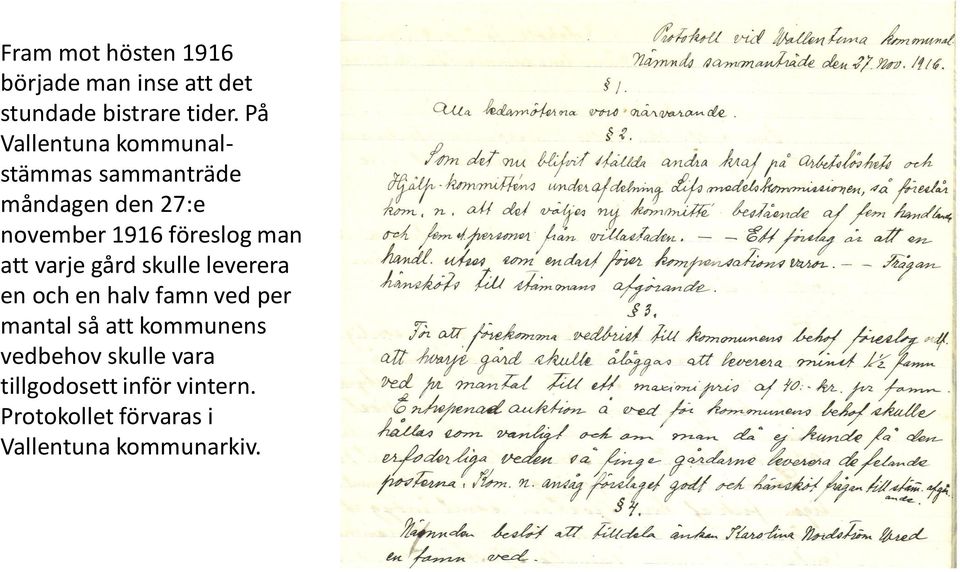 Fram mot hösten 1916
började man inse att det
stundade bistrare tider. På
Vallentuna kommunal-
stämmas sammanträde
måndagen den 27:e
november 1916 föreslog man
att varje gård skulle leverera
en och en halv famn ved per
mantal så att kommunens
vedbehov skulle vara
tillgodosett inför vintern.
Protokollet förvaras i
Vallentuna kommunarkiv.
Protokoll vid Wallentuna kommunal-
Nämnds sammanträde den 27 Nov. 1916.
§ 1.
Alla ledamöterna voro närvarande.
§ 2.
Som det nu blifvit ställda andra kraf på Arbetslöshets och
Hjälp-kommitténs underafdelning Lifsmedelskommissionen, så föreslår
kom. n. att det väljes ny kommitté bestående af fem handlande
och fem personer från villastaden. — — Ett förslag är att en
handl. utses som endast förer kompensationsvaror. — — Frågan
hänsköts till stämmans afgörande.
§ 3.
För att förekomma vedbrist till kommunens behof föreslog
att hvarje gård skulle åläggas att leverera minst 1½ famn
ved pr mantal till ett maximipris af 40:- kr. pr famn.
Entreprenad auktion å ved för kommunens behof skulle
hållas som vanligt och om man då ej kunde få den
erfoderliga veden så finge gårdarne leverera de felande
posterna. Kom. n. ansåg förslaget godt och hänsköt frågan till stäm. afgör-
ande.
§ 4.
Nämnden beslöt att tilldela änkan Karolina Nordström Wred
en famn ved.